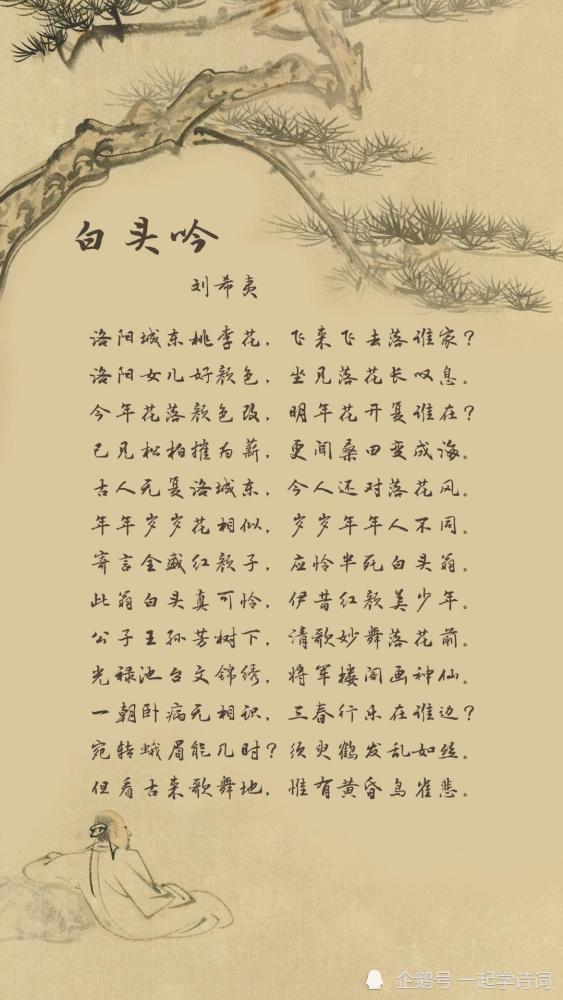 白头吟
刘希夷
洛阳城东桃李花，飞来飞去落谁家？
洛阳女儿好颜色，坐见落花长叹息。
今年花落颜色改，明年花开复谁在？
已见松柏摧为薪，更闻桑田变成海。
古人无复洛城东，今人还对落花风。
年年岁岁花相似，岁岁年年人不同。
寄言全盛红颜子，应怜半死白头翁。
此翁白头真可怜，伊昔红颜美少年。
公子王孙芳树下，清歌妙舞落花前。
光禄池台文锦绣，将军楼阁画神仙。
一朝卧病无相识，三春行乐在谁边？
宛转蛾眉能几时？须臾鹤发乱如丝。
但看古来歌舞地，惟有黄昏鸟雀悲。
企鹅号 一起学诗词